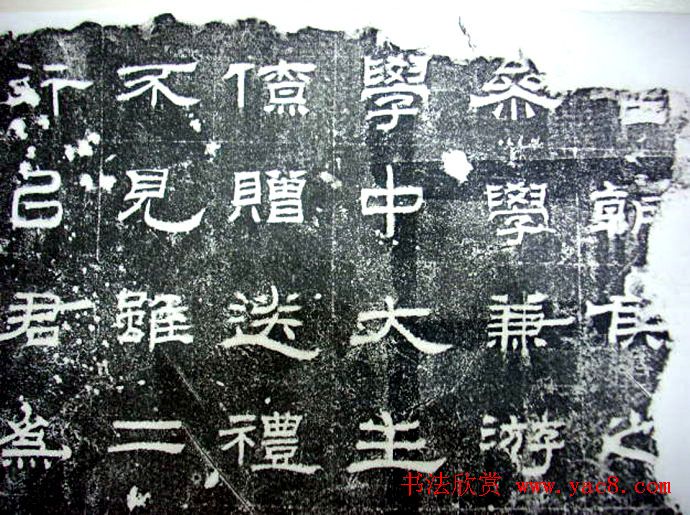 朝之
學兼游
學中大主
僚贈送禮
不見雖二
行己君
书法欣赏 www.yac8.com